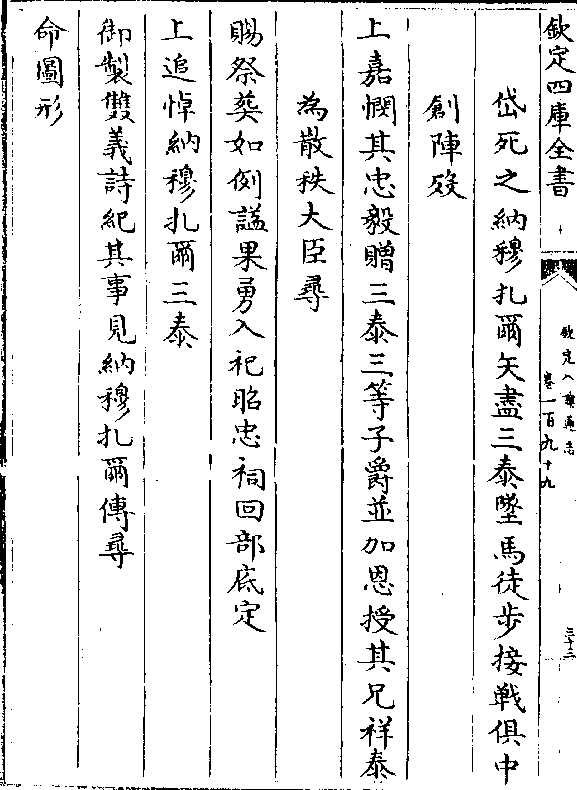 欽定四庫全書
欽定八旗通志
卷一百九十九
三十二
岱死之納穆扎爾矢盡三泰墜馬徒步接戰俱中
創陣歿
上嘉憫其忠毅贈三泰三等子爵並加恩授其兄祥泰
為散秩大臣尋
賜祭葬如例諡果勇入祀昭忠祠回部底定
上追悼納穆扎爾三泰
御製雙義詩紀其事見納穆扎爾傳尋
命圖形